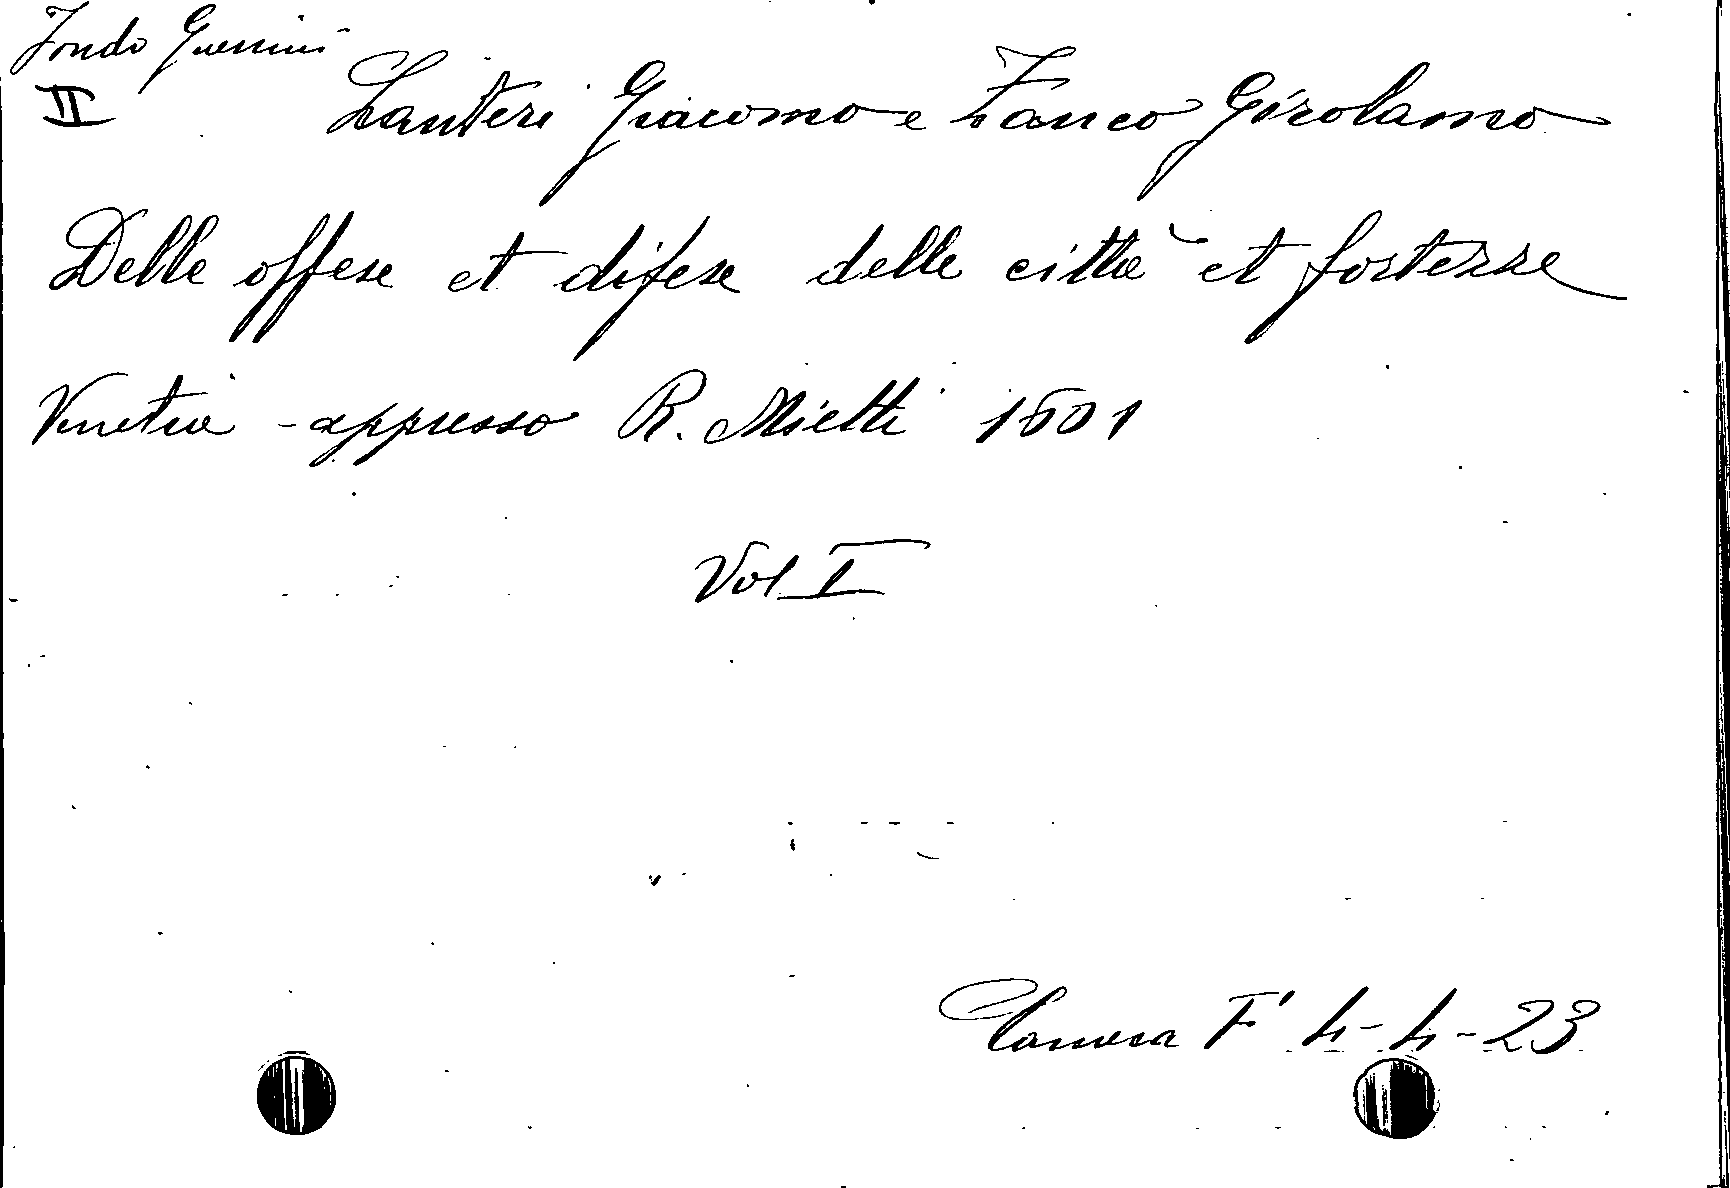 Fondo Guerrini
II Lanteri Giacomo e Zanco Girolamo
Delle offese et difese delle città et fortezze
Venetia - appresso R. Mietti 1601
Vol I
Camera F' 4-4-23